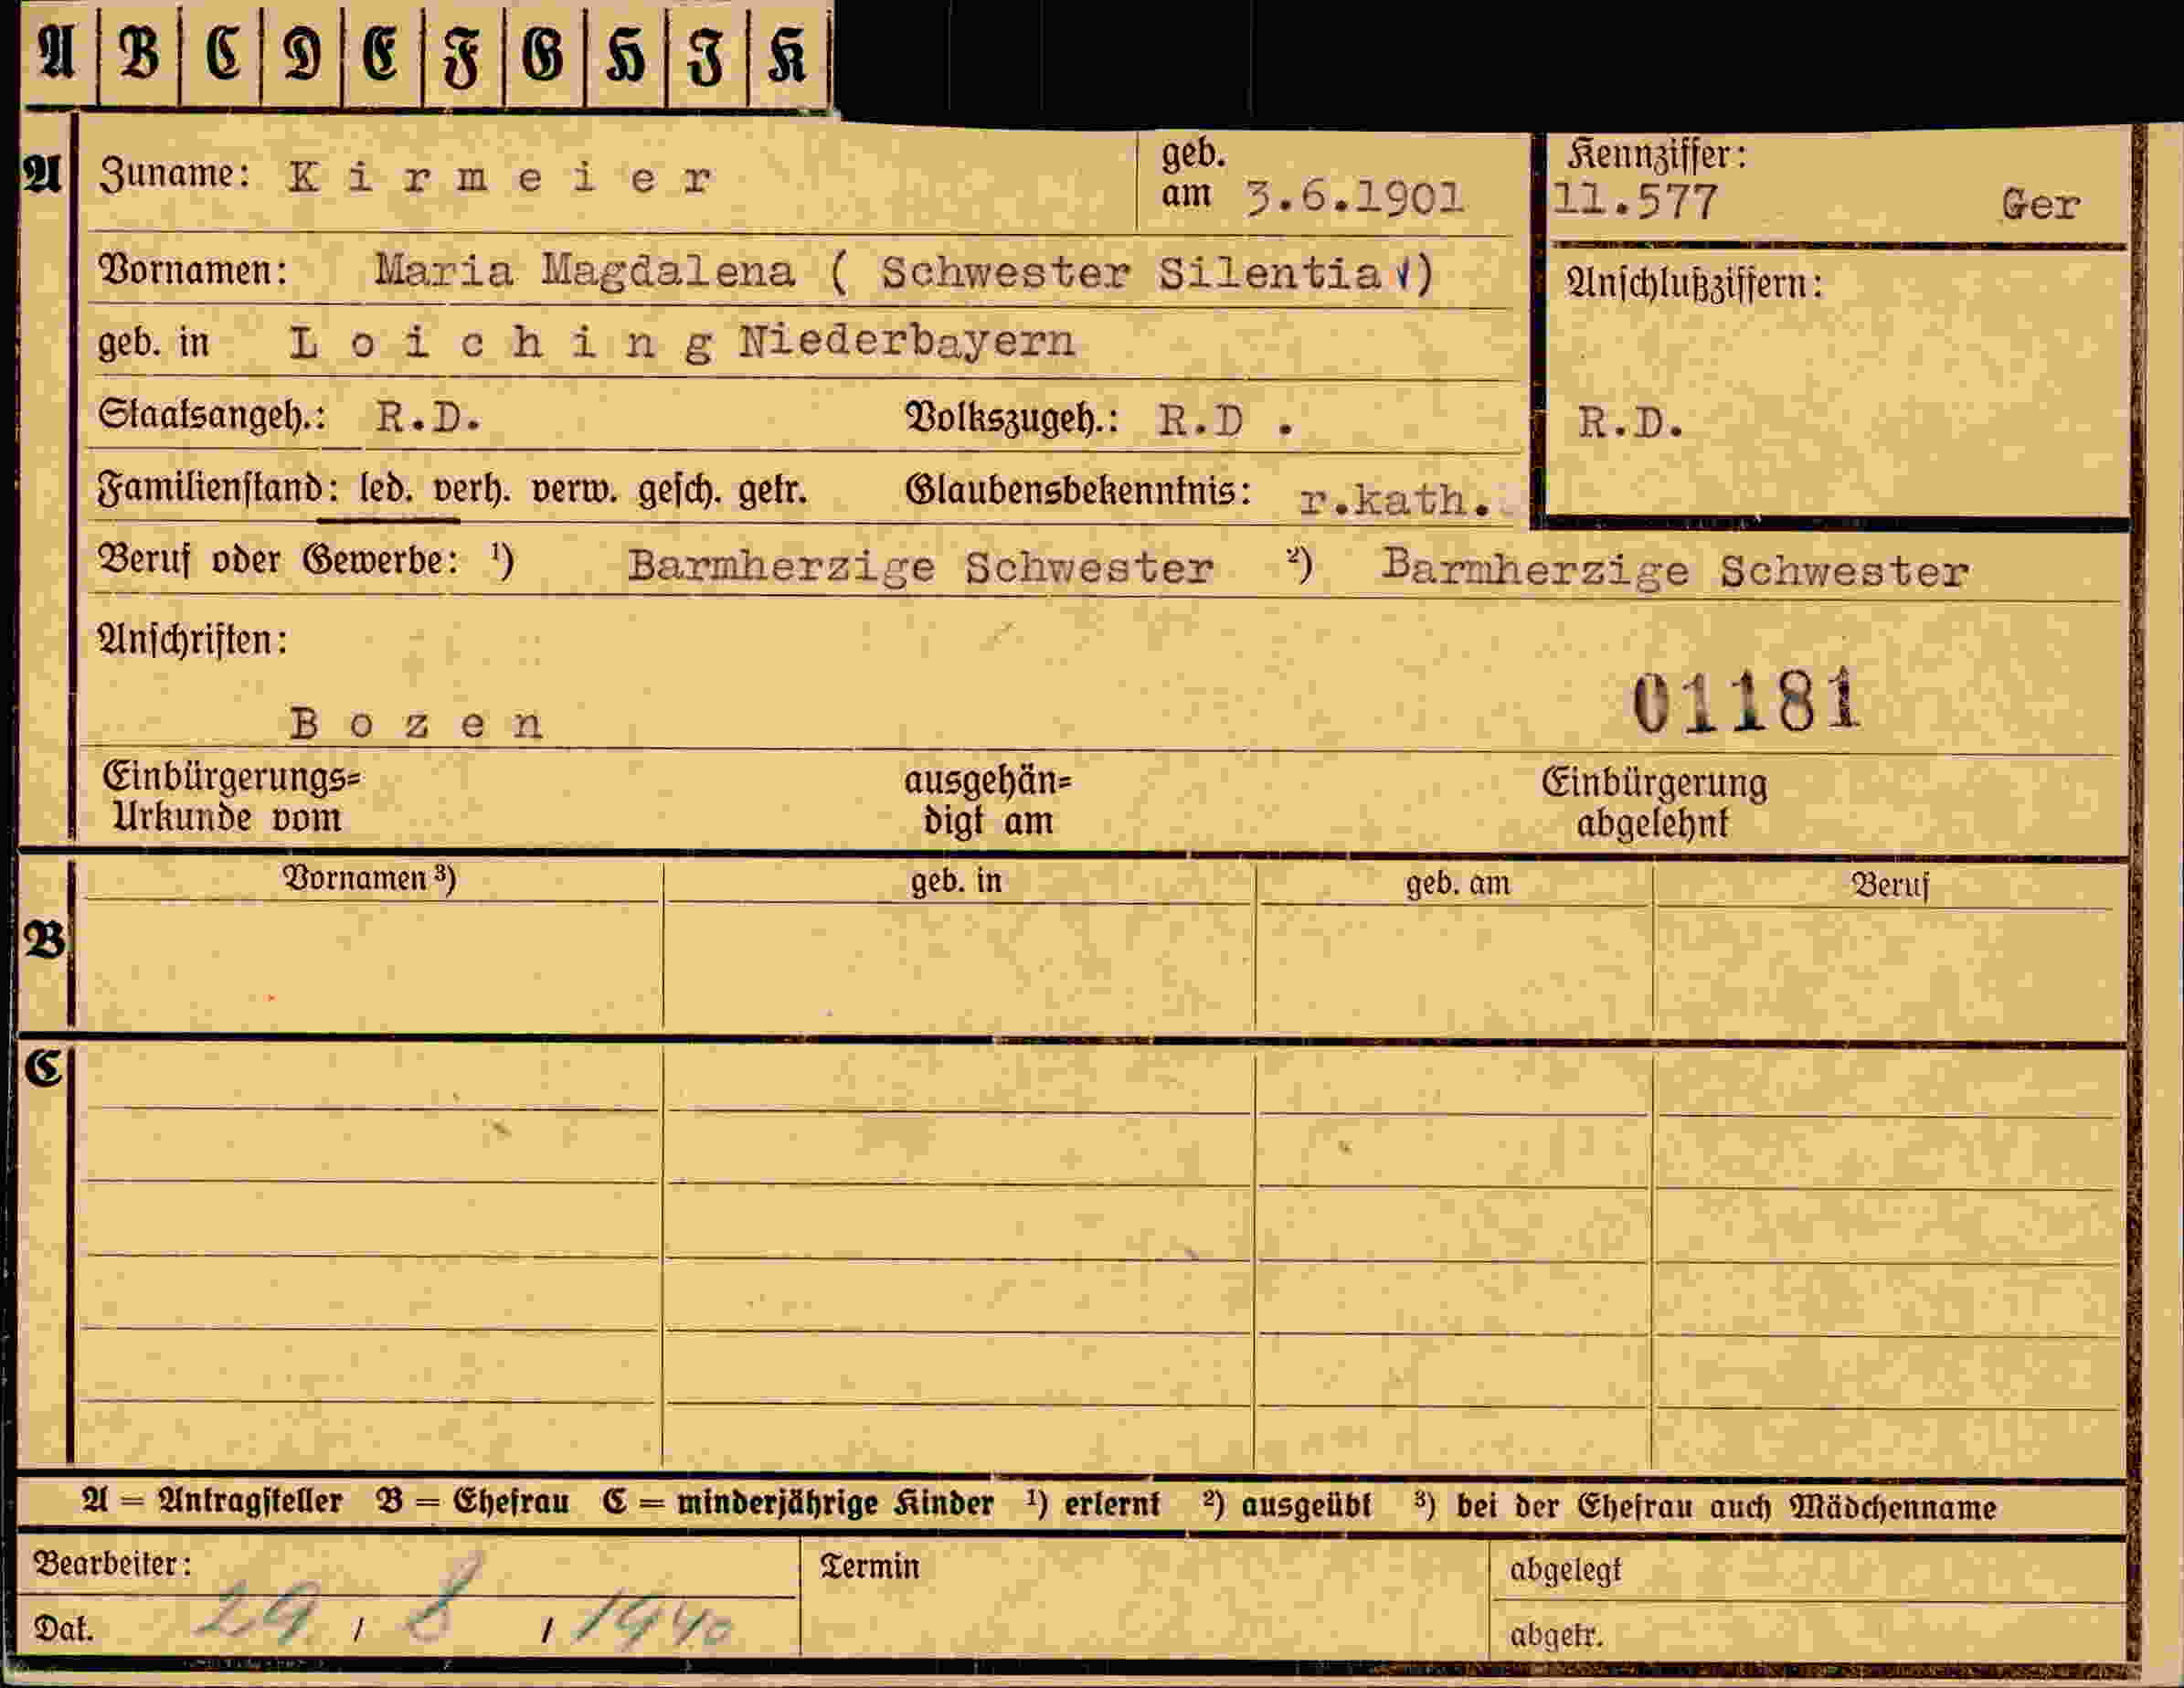 A B C D E F G H J K
A Zuname: Kirmeier geb. am 3.6.1901 Kennziffer: 11.577 Ger
Vornamen: Maria Magdalena ( Schwester Silentia √) Anschlußziffern:
geb. in Loiching Niederbayern
Staatsangeh.: R.D. Volkszugeh.: R.D . R.D.
Familienstand: led. verh. verw. gesch. getr. Glaubensbekenntnis: r.kath.
Beruf oder Gewerbe: ¹) Barmherzige Schwester ²) Barmherzige Schwester
Anschriften:
Bozen 01181
Einbürgerungs= ausgehän= Einbürgerung
Urkunde vom digt am abgelehnt
Vornamen ³) geb. in geb. am Beruf
B
C
A = Antragsteller B = Ehefrau C = minderjährige Kinder ¹) erlernt ²) ausgeübt ³) bei der Ehefrau auch Mädchenname
Bearbeiter: Termin abgelegt
Dat. 29. / 8 / 1940 abgetr.